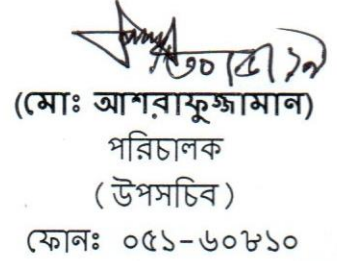 ৩০|৫|১৯
(মোঃ আশরাফুজ্জামান)
পরিচালক
( উপসচিব )
ফোনঃ ০৫১-৬০৮১০